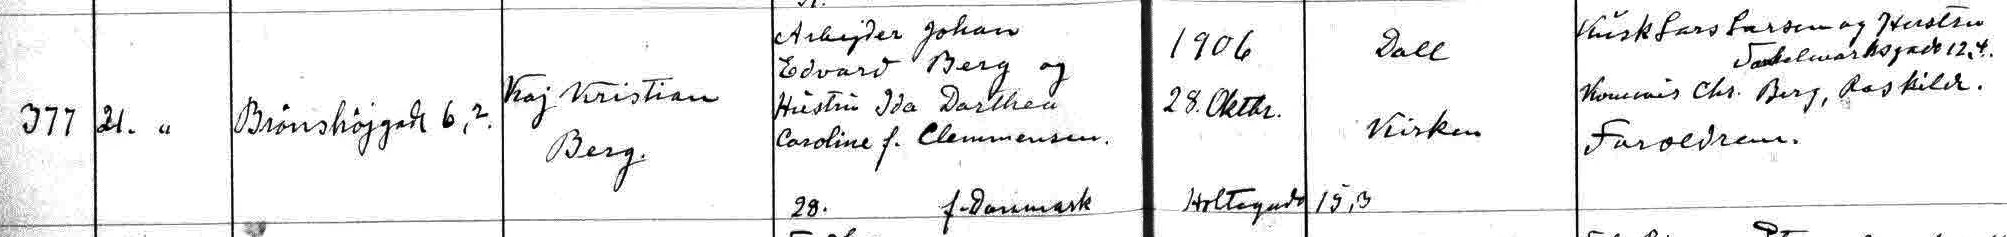 377
21. "
Brönshöjgade 6, 2.
Kaj Kristian
Berg.
Arbejder Johan
Edvard Berg og
Hustru Ida Dorthea
Caroline f. Clemmensen.
28. f. Danmark
1906
28. Oktbr.
Holtegade 15, 3
Dall
Kirken
Kusk Lars Larsen og Hustru
12, 4.
Kommis Chr. Berg, Roskilde.
Forældrene.